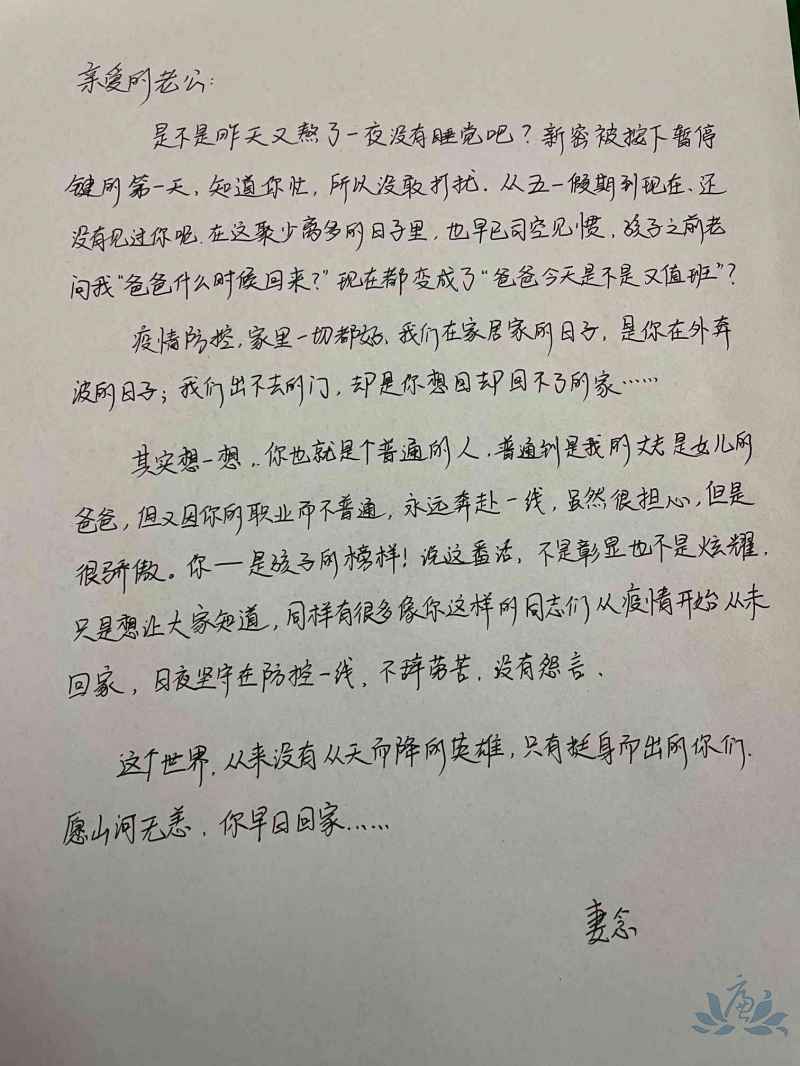 亲爱的老公:
是不是昨天又熬了一夜没有睡觉吧?新密被按下暂停
键的第一天,知道你忙,所以没敢打扰.从五一假期到现在、还
没有见过你呢.在这聚少离多的日子里,也早已司空见惯,孩子之前老
问我“爸爸什么时候回来?”现在都变成了“爸爸今天是不是又值班”?
疫情防控,家里一切都好、我们在家居家的日子,是你在外奔
波的日子;我们出不去的门,却是你想回却回不了的家……
其实想一想,.你也就是个普通的人.普通到是我的丈夫是女儿的
爸爸,但又因你的职业而不普通,永远奔赴一线,虽然很担心,但是
很骄傲。你——是孩子的榜样!说这番话,不是彰显也不是炫耀.
只是想让大家知道,同样有很多像你这样的同志们从疫情开始从未
回家,日夜坚守在防控一线,不辞劳苦,没有怨言.
这个世界.从来没有从天而降的英雄,只有挺身而出的你们.
愿山河无恙,你早日回家……
妻念
廉